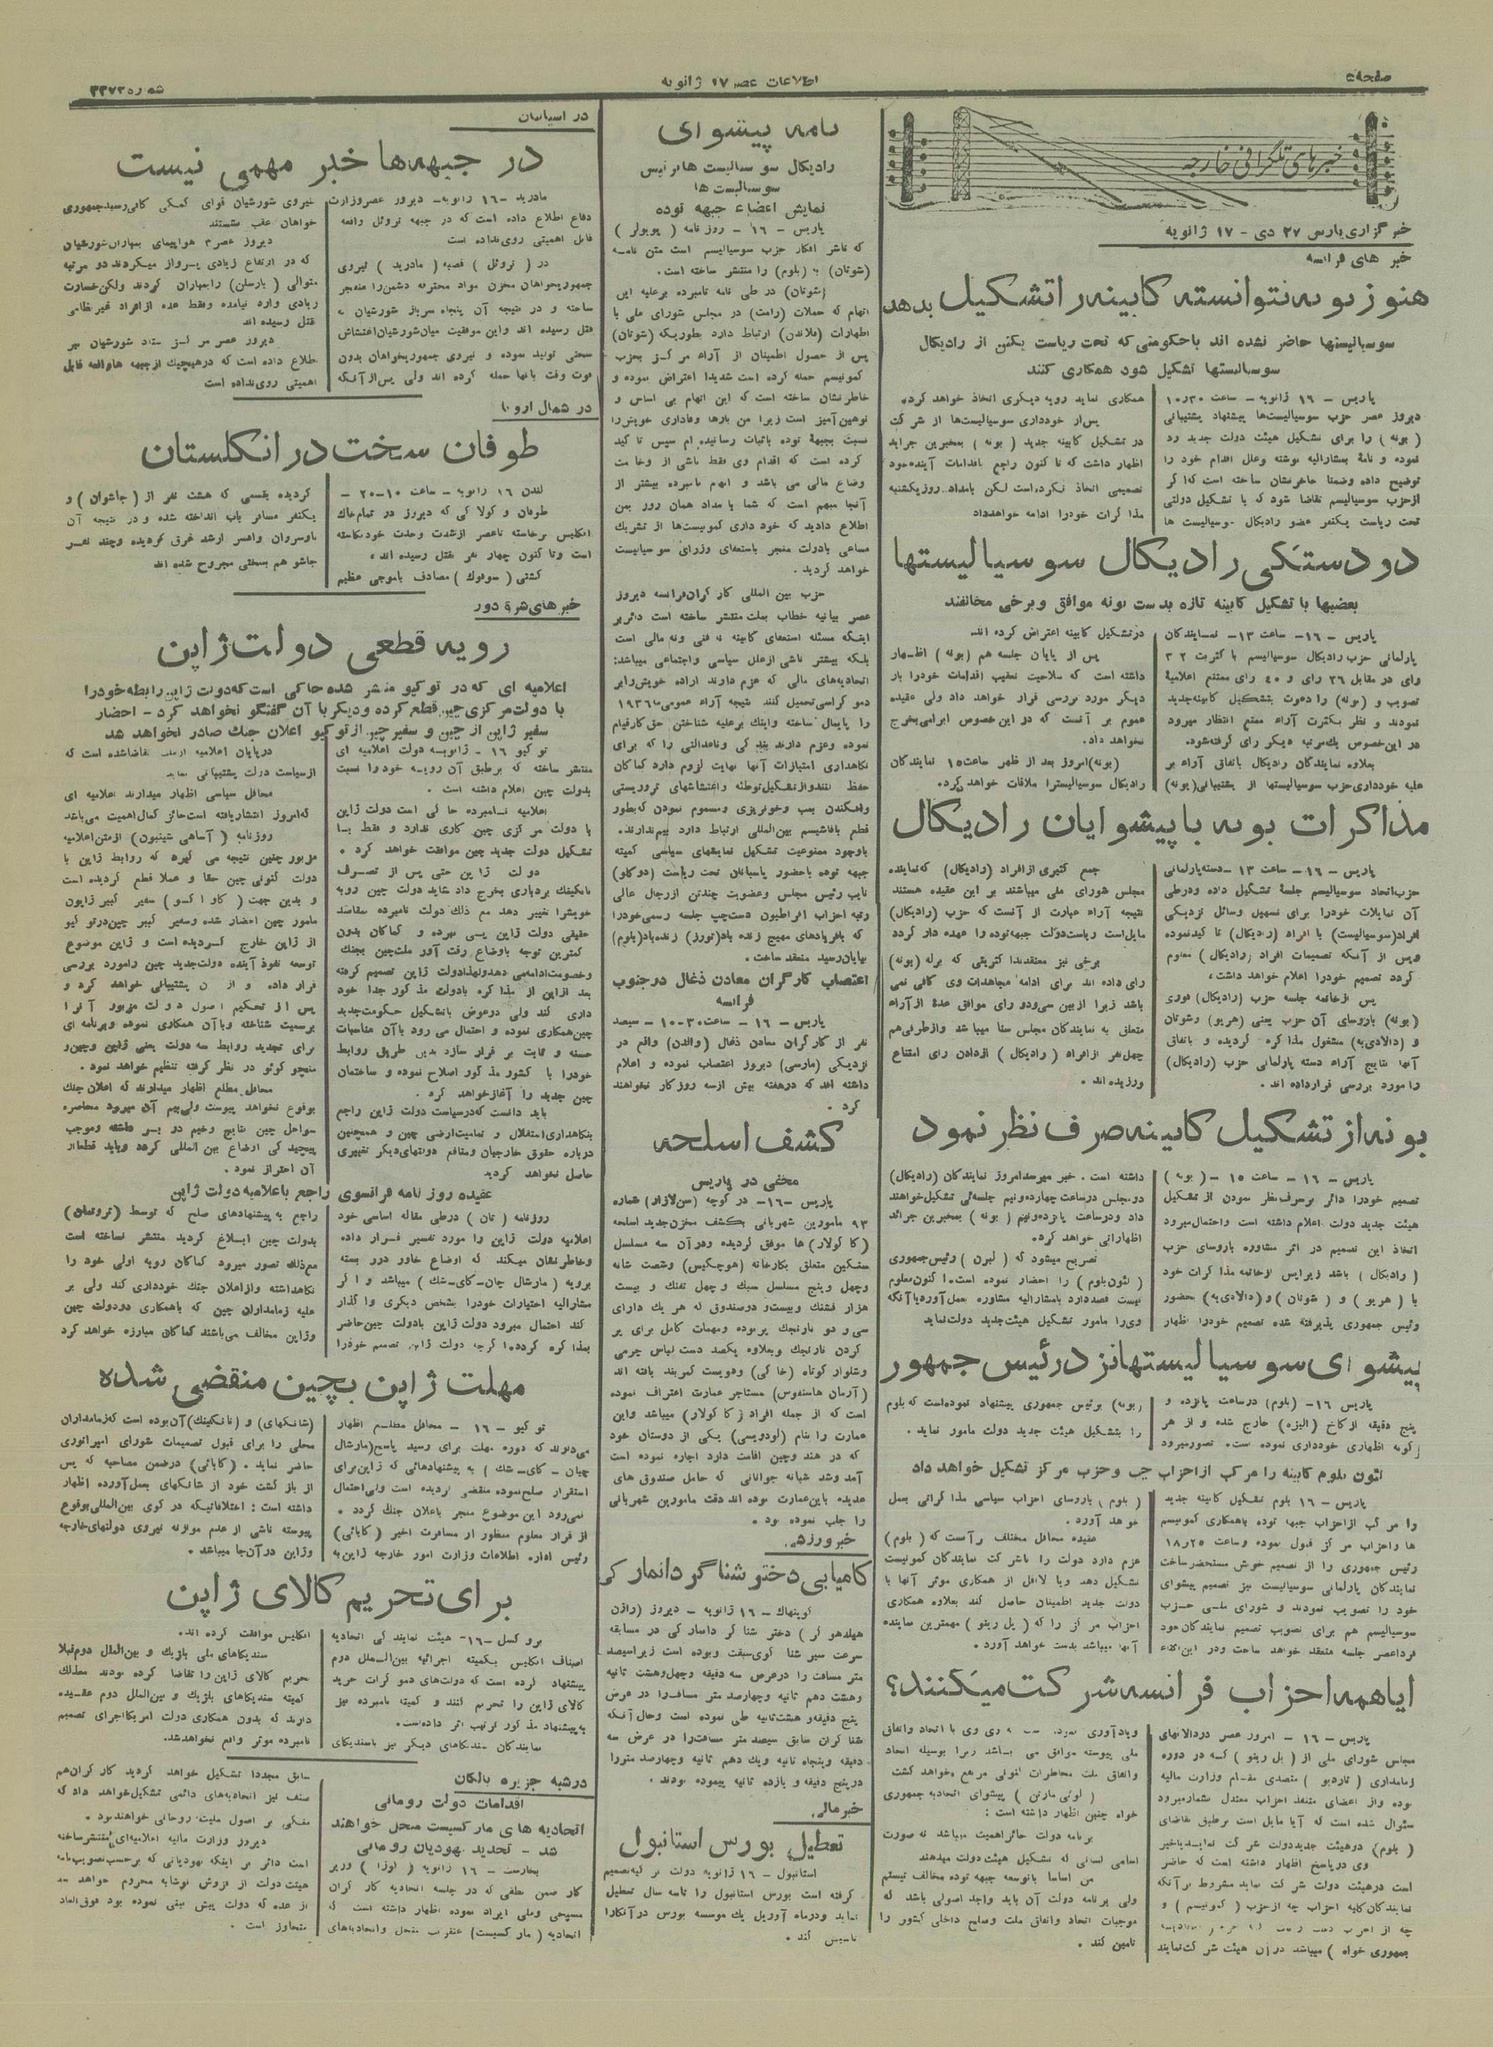 صفحه ۵
اطلاعات عصر ۱۷ ژانویه
شماره ۳۳۷۳
خبرهای تلگرافی خارجه
خبرگزاری پارس ۲۷ دی - ۱۷ ژانویه
خبر های فرانسه
هنوز بونه نتوانسته کابینه را تشکیل بدهد
سوسیالیستها حاضر نشده اند باحکومتی که تحت ریاست یکتن از رادیکال
سوسیالیستها تشکیل شود همکاری کنند
پاریس - ۱۶ ژانویه - ساعت ۱۰ر۳۰
دیروز عصر حزب سوسیالیست‌ها پیشنهاد پشتیبانی
( بونه ) را برای تشکیل هیئت دولت جدید رد
نموده و نامهٔ بمشارالیه نوشته وعلل اقدام خود را
توضیح داده وضمنا خاطرنشان ساخته است که اگر
ازحزب سوسیالیسم تقاضا شود که با تشکیل دولتی
تحت ریاست یکنفر عضو رادیکال سوسیالیست ها
همکاری نماید رویه دیگری اتخاذ خواهد کرد.
پس‌از خودداری سوسیالیست‌ها از شرکت
در تشکیل کابینه جدید ( بونه ) بمخبرین جراید
اظهار داشت که تا کنون راجع باقدامات آینده خود
تصمیمی اتخاذ نکرده‌است لکن بامداد روز یکشنبه
مذا کرات خودرا ادامه خواهد داد
دودستگی رادیکال سوسیالیستها
بعضیها با تشکیل کابینه تازه بدست بونه موافق وبرخی مخالفند
پاریس -۱۶- ساعت ۱۳- نمایندگان
پارلمانی حزب رادیکال سوسیالیسم با کثرت ۳۲
رای در مقابل ۲۶ رای و ۴۰ رای ممتنع اعلامیهٔ
تصویب و (بونه) را دعوت بتشکیل کابینه‌جدید
نمودند و نظر بکثرت آراء ممتنع انتظار میرود
در این‌خصوص یك‌مرتبه دیگر رای گرفته‌شود.
بعلاوه نمایندگان رادیکال باتفاق آراء بر
علیه خودداری‌حزب سوسیالیستها از پشتیبانی (بونه)
درتشکیل کابینه اعتراض کرده اند.
پس از پایان جلسه هم (بونه) اظهار
داشته است که صلاحیت تعقیب اقدامات خودرا بار
دیگر مورد بررسی قرار خواهد داد ولی عقیده
عموم بر آنست که در این‌خصوص ابرامی بخرج
نخواهد داد.
(بونه)امروز بعد از ظهر ساعت۱۵ نمایندگان
رادیکال سوسیالیسترا ملاقات خواهد کرد.
مذاکرات بونه با پیشوایان رادیکال
پاریس -۱۶- ساعت ۱۳ -دسته پارلمانی
حزب‌اتحاد سوسیالیسم جلسهٔ تشکیل داده ودرطی
آن تمایلات خودرا برای تسهیل وسائل نزدیکی
افراد(سوسیالیست) با افراد (رادیکال) تا کید نموده
وپس از آنکه تصمیمات افراد (رادیکال) معلوم
گردد تصمیم خودرا اعلام خواهد داشت.
پس ازخاتمه جلسه حزب (رادیکال) فوری
(بونه) باروسای آن حزب یعنی (هریو) و(شوتان
و (دالادی‌به) مشغول مذا کره گردیده و باتفاق
آنها نتایج آراء دسته پارلمانی حزب (رادیکال)
را مورد بررسی قرارداده اند.
جمع کثیری ازافراد (رادیکال) که نماینده
مجلس شورای ملی میباشند بر این عقیده هستند
نتیجه آراء عبارت از آنست که حزب (رادیکال)
مایل‌است ریاست‌دولت جبهه‌توده را عهده دار گردد
برخی نیز معتقدند‌ا کثریتی که برله (بونه)
رای داده اند برای ادامه مجاهدات وی کافی نمی
باشد زیرا ازبین می‌رود‌و رای موافق عدهٔ ازآراء
متعلق به نمایندگان مجلس سنا میباشد وازطرفی‌هم
چهل‌نفر ازافراد (رادیکال) ازدادن رای امتناع
ورزیده اند.
بونه از تشکیل کابینه صرف نظر نمود
پاریس -۱۶- ساعت ۱۵ -( بونه )
تصمیم خودرا دائر برصرف‌نظر نمودن ازتشکیل
هیئت جدید دولت اعلام داشته است واحتمال‌میرود
اتخاذ این تصمیم در اثر مشاوره باروسای حزب
( رادیکال ) باشد زیراپس ازخاتمه مذا کرات خود
با ( هریو ) و ( شوتان ) و(دالادی‌به) حضور
رئیس جمهوری پذیرفته شده تصمیم خودرا اظهار
داشته است. خبر میرسد‌امروز نمایندگان (رادیکال)
دومجلس درساعت چهارده‌ونیم جلسه‌ئی تشکیل‌خواهند
داد ودوساعت پانزده‌ونیم ( بونه ) بمخبرین جرائد
اظهاراتی خواهد کرد.
تصریح میشود که ( لبرن ) رئیس‌جمهوری
( لئون‌بلوم ) را احضار نموده است.ا کنون‌معلوم
نیست قصددارد بامشارالیه مشاوره بعمل‌آورد‌یاآنکه
وی‌را مامور تشکیل هیئت‌جدید دولت‌نماید
پیشوای سوسیالیستها نزد رئیس جمهور
پاریس ۱۶- (بلوم) درساعت پانزده و
پنج دقیقه ازکاخ (الیزه) خارج شده و از هر
گونه اظهاری خودداری نموده است. تصورمیرود
(بونه) برئیس جمهوری پیشنهاد نموده‌است‌که‌بلوم
را بتشکیل هیئت جدید دولت مامور نماید.
لئون بلوم کابینه را مرکب ازاحزاب چپ وحزب مرکز تشکیل خواهد داد
پاریس - ۱۶ بلوم تشکیل کابینه جدید
را مرکب ازاحزاب جبهه توده باهمکاری کمونیسم
ها واحزاب مرکز قبول نموده وساعت ۱۸ر۲۵
رئیس جمهوری را از تصمیم خویش مستحضرساخت
نمایندگان پارلمانی سوسیالیست نیز تصمیم پیشوای
خود را تصویب نمودند و شورای ملی حزب
سوسیالیسم هم برای تصویب تصمیم نمایندگان‌خود
فرداعصر جلسه منعقد خواهد ساخت ودر این‌اثناء
( بلوم ) باروسای احزاب سیاسی مذا کراتی بعمل
خواهد آورد.
عقیده محافل مختلف بر‌آنست که ( بلوم )
عزم دارد دولت را باشرکت نمایندگان کمونیست
تشکیل دهد ویا لااقل از همکاری موثر آنها با
دولت جدید اطمینان حاصل کند بعلاوه همکاری
احزاب مرکز را که ( پل رینو ) مهمترین نماینده
آنها میباشد بدست خواهد آورد.
ایا همه احزاب فرانسه شرکت میکنند؟
پاریس -۱۶ - امروز عصر دردالانهای
مجلس شورای ملی از ( پل رینو ) که در دوره
زمامداری ( تاردیو ) متصدی مقام وزارت مالیه
بوده واز اعضای متنفذ احزاب معتدل بشمارمیرود
سئوال شده است که آیا مایل است برطبق تقاضای
( بلوم) درهیئت جدیددولت شرکت نماید‌یاخیر
وی درپاسخ اظهار داشته است که حاضر
است درهیئت دولت شرکت نماید مشروط برآنکه
نمایندگان‌کلیه احزاب چه ازحزب ( کمونیسم ) و
جمهوری خواه ) میباشد درآن هیئت شرکت‌نمایند
ملی پیوسته موافق می باشد زیرا بوسیله اتحاد
واتفاق ملت مخاطرات کنونی مرتفع خواهد گشت
( لوئی مارن ) پیشوای اتحادیه جمهوری
خواه چنین اظهار داشته است :
برنامه دولت حائز‌اهمیت میباشد نه صورت
اسامی کسانی که تشکیل هیئت دولت میدهند
من اساسا باتوسعه جبهه توده مخالف نیستم
ولی برنامه دولت آن باید واجد اصولی باشد که
موجبات اتحاد واتفاق ملت وصلح داخلی کشور را
تامین کند.
نامه پیشوای
رادیکال سوسیالیست ها برئیس
سوسیالیست ها
نمایش اعضاء جبهه توده
پاریس - ۱۶ - روز نامه ( پوپولر )
که ناشر افکار حزب سوسیالیسم است متن نامه
(شوتان) به (بلوم) را منتشر ساخته است.
(شوتان) در طی نامه نامبرده برعلیه این
اتهام که حملات (رامت) در مجلس شورای ملی با
اظهارات (فلاندن) ارتباط دارد بطوریکه (شوتان)
پس از حصول اطمینان از آراء مرکز بحزب
کمونیسم حمله کرده است شدیدا اعتراض نموده و
خاطرنشان ساخته است که این اتهام بی اساس و
توهین‌آمیز است زیرا من بارها وفاداری خویش‌را
نسبت بجبههٔ توده باثبات رسانیده‌ام سپس تا کید
کرده است که اقدام وی فقط ناشی از وخامت
وضاع مالی می باشد و اتهام نامبرده بیشتر از
آنجا مبهم است که شما بامداد همان روز بمن
اطلاع دادید که خود داری کمونیست‌ها از تشریك
مساعی بادولت منجر باستعفای وزرای سوسیالیست
خواهد گردید.
حزب بین المللی کار گران‌فرانسه دیروز
عصر بیانیه خطاب بملت منتشر ساخته است دائر‌بر
اینکه مسئله استعفای کابینه نه فنی ونه مالی است
بلکه بیشتر ناشی ازعلل سیاسی واجتماعی میباشد:
اتحادیه‌های مالی که عزم دارند اراده خویش‌را‌بر
دموکراسی‌تحمیل کنند نتیجه آراء عمومی ۱۹۳۶
را پایمال ساخته واینك برعلیه شناختن حق‌کارقیام
نموده وعزم دارند بندگی وناعدالتی را که برای
نگاهداری امتیازات آنها نهایت لزوم دارد کماکان
قطع بافاشیسم بین‌المللی ارتباط دارد بیم‌ندارند.
باوجود ممنوعیت تشکیل نمایشهای سیاسی کمیته
جبهه توده باحضور پاسبانان تحت ریاست (دوکلو)
نایب رئیس مجلس وعضویت چندتن ازرجال عالی
رتبه احزاب افراطیون دست‌چپ جلسه رسمی‌خودرا
که بافریادهای مهیج زنده باد(تورز) زنده‌باد(بلوم)
بپایان‌رسید منعقد ساخت.
اعتصاب کارگران معادن ذغال درجنوب
فرانسه
پاریس -۱۶ - ساعت۳۰-۱۰ - سیصد
نفر از کارگران معادن ذغال (والدن) واقع در
نزدیکی (مارسی) دیروز اعتصاب نموده و اعلام
داشته اند که درهفته بیش ازسه روزکار نخواهند
کرد.
کشف اسلحه
مخفی در پاریس
پاریس -۱۶- در کوچه (سن‌لازار) شماره
۹۳ مامورین شهربانی بکشف مخزن‌جدید اسلحه
(کا کولار) ها موفق گردیده ودرآن سه مسلسل
سنگین متعلق بکارخانه (هوچکیس) وشصت شانه
وچهل وپنج مسلسل سبك و چهل تفنك و بیست
هزار فشنك وبیست‌و دوصندوق که هر یك دارای
سی‌و دو نارنجك پربوده ومهمات کامل برای پر
کردن نارنجك وبعلاوه یکصد دست لباس چرمی
وشلوار کوتاه (خاکی) ودویست کمربند یافته اند
(آرمان هاسنفوس) مستاجر عمارت اعتراف نموده
است که از جمله افراد (کا کولار) میباشد واین
عمارت را بنام (لودویسی) یکی از دوستان خود
که در هند وچین اقامت دارد اجاره نموده است
آمد وشد شبانه جوانانی که حامل صندوق های
عدیده باین‌عمارت بوده اند دقت مامورین شهربانی
را جلب نموده بود.
خبر ورزشی
کامیابی دختر شناگر دانمارکی
کوپنهاك - ۱۶ ژانویه - دیروز (راژن
هیلدهوگر ) دختر شنا گر دانمارکی در مسابقه
سرعت سیر شنا گوی‌سبقت ربوده است زیراسیصد
متر مسافت را درعرض سه دقیقه وچهل‌وهشت ثانیه
وهشت دهم ثانیه وچهارصد متر مسافت‌را در عرض
پنج دقیقه‌و هشت‌ثانیه طی نموده است وحال‌آنکه
شنا گران سابق سیصد متر مسافت‌را در عرض سه
دقیقه وپنجاه ثانیه ویك دهم ثانیه وچهارصد متررا
درپنج دقیقه و یازده ثانیه پیموده بودند.
خبر مالی
تعطیل بورس استانبول
استانبول - ۱۶ ژانویه دولت ترکیه‌تصمیم
گرفته است بورس استانبول را تاسه سال تعطیل
نماید ودرماه آوریل یك موسسه بورس درآنکارا
تاسیس کند.
در اسپانیا
در جبهه ها خبر مهمی نیست
مادرید -۱۶ ژانویه- دیروز عصروزارت
دفاع اطلاع داده است که در جبهه تروئل واقعه
قابل اهمیتی روی‌نداده است
در ( تروئل ) قصبه ( مادرید ) نیروی
جمهوریخواهان مخزن مواد محترقه دشمن‌را منفجر
ساخته و در نتیجه آن پنجاه سرباز شورشیان به
قتل رسیده اند واین موفقیت میان‌شورشیان‌اغتشاش
سختی تولید نموده و نیروی جمهوریخواهان بدون
فوت وقت بآنها حمله کرده اند ولی پس‌ازآنکه
نیروی شورشیان قوای کمکی کافی‌رسیدجمهوری
خواهان عقب نشستند
دیروز عصر۶ هواپیمای بمباران‌شورشیان
که در ارتفاع زیادی پرواز میکردند دو مرتبه
متوالی ( بارسلن) رابمباران کردند ولکن‌خسارت
زیادی وارد نیامده وفقط عده ازافراد غیرنظامی
قتل رسیده اند
دیروز عصر مرکز ستاد شورشیان نیز
طلاع داده است که درهیچیك ازجبهه هاواقعه قابل
اهمیتی روی‌نداده است
در شمال اروپا
طوفان سخت در انگلستان
لندن ۱۶ ژانویه - ساعت ۱۰-۲۰ -
طوفان و کولاکی که دیروز در تمام خاك
انگلیس برخاسته تاعصر ازشدت وحدت خودنکاسته
است وتا کنون چهار نفر بقتل رسیده اند.
مصادف باموجی عظیم
گردیده بقسمی که هشت نفر از ( جاشوان ) و
یکنفر مسافر باب انداخته شده و در نتیجه آن
جاشو هم بسختی مجروح شده اند
خبرهای شرق دور
رویه قطعی دولت ژاپن
اعلامیه ای که در توکیو منتشر شده حاکی است که دولت ژاپن رابطه خودرا
با دولت مرکزی چین قطع کرده ودیگر با آن گفتگو نخواهد کرد - احضار
سفیر ژاپن از چین و سفیر چین از توکیو اعلان جنك صادر نخواهد شد
توکیو ۱۶ - ژانویه دولت اعلامیه ای
منتشر ساخته که برطبق آن رویه خود را نسبت
بدولت چین اعلام داشته است.
اعلامیه نامبرده حاکی است دولت ژاپن
با دولت مرکزی چین کاری ندارد و فقط با
تشکیل دولت جدید چین موافقت خواهد کرد.
دولت ژاپن حتی پس از تصرف
نانکینك بردباری بخرج داد شاید دولت چین رویه
خویشرا تغییر دهد مع ذلك دولت نامبرده بمقاصد
حقیقی دولت ژاپن پی نبرده و کماکان بدون
کمترین توجه باوضاع رقت آور ملت‌چین بجنك
وخصومت‌ادامه‌می دهدولهذا‌دولت ژاپن تصمیم گرفته
بعد ازاین از مذا کره بادولت مذ کور جدا خود
داری کند ولی درعوض باتشکیل حکومت‌جدید
چین‌همکاری نموده و احتمال می رود باآن مناسبات
حسنه و ثابت بر قرار سازد بدین طریق روابط
خودرا با کشور مذ کور اصلاح نموده و ساختمان
چین جدید را آغازخواهد کرد.
باید دانست که‌درسیاست دولت ژاپن راجع
بنگاهداری‌استقلال و تمامیت‌ارضی چین و همچنین
درباره حقوق خارجیان ومنافع دولتهای‌دیگر تغییری
حاصل نخواهد گردید
ازسیاست دولت پشتیبانی نماید
محافل سیاسی اظهار میدارند اعلامیه ای
که‌امروز انتشاریافته است‌حائز کمال‌اهمیت می‌باشد
روزنامه ( آساهی شینبون) ازمتن‌اعلامیه
مزبور چنین نتیجه می گیرد که روابط ژاپن با
دولت کنونی چین حقا و عملا قطع گردیده است
و بدین جهت ( کاواگو) سفیر کبیر ژاپون
مامور چین احضار شده وسفیر کبیر چین‌درتوکیو
از ژاپن خارج گردیده است و ژاپن موضوع
توسعه نفوذ آینده دولت‌جدید چین رامورد بررسی
قرار داده و از آن پشتیبانی خواهد کرد و
پس از تحکیم اصول دولت مزبور آنرا
برسمیت شناخته وباآن همکاری نموده وبرنامه ای
برای تجدید روابط سه دولت یعنی ژاپن وچین‌و
منچو کوئو در نظر گرفته تنظیم خواهد نمود.
محافل مطلع اظهار میدارند که اعلان جنك
بوقوع نخواهد پیوست ولی‌بیم آن میرود محاصره
سواحل چین نتایج وخیم در بر داشته وموجب
پیچیدگی اوضاع بین المللی گردد وباید قطعااز
آن احتراز نمود.
عقیده روزنامه فرانسوی راجع باعلامیه دولت ژاپن
روزنامه ( تان) درطی مقاله اساسی خود
اعلامیه دولت ژاپن را مورد تفسیر قرار داده
وخاطرنشان میکند که اوضاع خاور دور بسته
برویه ( مارشال چان-کای-شك ) میباشد و اگر
مشارالیه اختیارات خودرا بشخص دیگری واگذار
کند احتمال میرود دولت ژاپن بادولت چین‌حاضر
بمذا کره گردد.ا گرچه دولت ژاپن تصمیم خودرا
راجع به پیشنهادهای صلح که توسط (تروتمان)
بدولت چین ابلاغ گردید منتشر نساخته است
مع‌ذلك تصور میرود کماکان رویه اولی خود را
نگاهداشته وازاعلان جنك خودداری کند ولی بر
علیه زمامداران چین که باهمکاری دودولت چین
وژاپن مخالف می‌باشند کماکان مبارزه خواهد کرد
مهلت ژاپن بچین منقضی شده
توکیو - ۱۶ - محافل مطلع اظهار
می‌دارند که دوره مهلت برای رسید پاسخ(مارشال
چیان - کای-شك ) به پیشنهادهائی که ژاپن‌برای
استقرار صلح‌نموده منقضی گردیده است ولی‌احتمال
نمی‌رود این موضوع منجر باعلان جنك گردد.
از قرار معلوم منظور از مسافرت اخیر (کابائی)
رئیس اداره اطلاعات وزارت امور خارجه ژاپن‌به
(شانگهای) و (نانکینك)آن‌بوده است که‌زمامداران
محلی را برای قبول تصمیمات شورای امپراتوری
حاضر نماید. (کابائی) درضمن مصاحبه که پس
از بازگشت خود از شانگهای بعمل‌آورده اظهار
داشته است : اختلافاتیکه در کوی بین‌المللی‌بوقوع
پیوسته ناشی از عدم موازنه نیروی دولتهای‌خارجه
وژاپن درآن‌جا میباشد.
برای تحریم کالای ژاپن
بروکسل -۱۶- هیئت نمایندگی اتحادیه
اصناف انگلیس بکمیته اجرائیه بین‌المللی دوم
پیشنهاد کرده است که دولت‌های دموکرات خرید
کالای ژاپن را تحریم کنند و کمیته نامبرده نیز
به‌پیشنهاد مذ کور ترتیب اثر داده‌است.
نمایندگان سندیکاهای دیگر نیز باسندیکای
انگلیس موافقت کرده اند.
سندیکاهای ملی بلژیك و بین‌الملل دوم‌قبلا
تحریم کالای ژاپن را تقاضا کرده بودند معذلك
کمیته سندیکاهای بلژیك و بین‌الملل دوم عقیده
دارند که بدون همکاری دولت امریکااجرای تصمیم
نامبرده موثر واقع نخواهدشد.
درشبه جزیره بالکان
اقدامات دولت رومانی
اتحادیه های مارکسیست منحل خواهند
شد - تحدید یهودیان رومانی
بخارست - ۱۶ ژانویه ( لوزا ) وزیر
کار ضمن نطقی که در جلسه اتحادیه کارگران
مسیحی وملی ایراد نموده اظهار داشته است که
اتحادیه ( مارکسیست) عنقریب منحل واتحادیه‌های
سابق مجددا تشکیل خواهد گردید کارگران‌هم
صنف نیز اتحادیه‌های دائمی تشکیل‌خواهد داد که
متکی بر اصول ملیت روحانی خواهندبود.
دیروز وزارت مالیه اعلامیه‌ای‌منتشرساخته
است دائر بر اینکه یهودیانی که برحسب‌تصویب‌نامه
هیئت‌دولت از فروش نوشابه محروم خواهد شد
از عده که دولت پیش بینی نموده بود فوق‌العاده
متجاوز است.